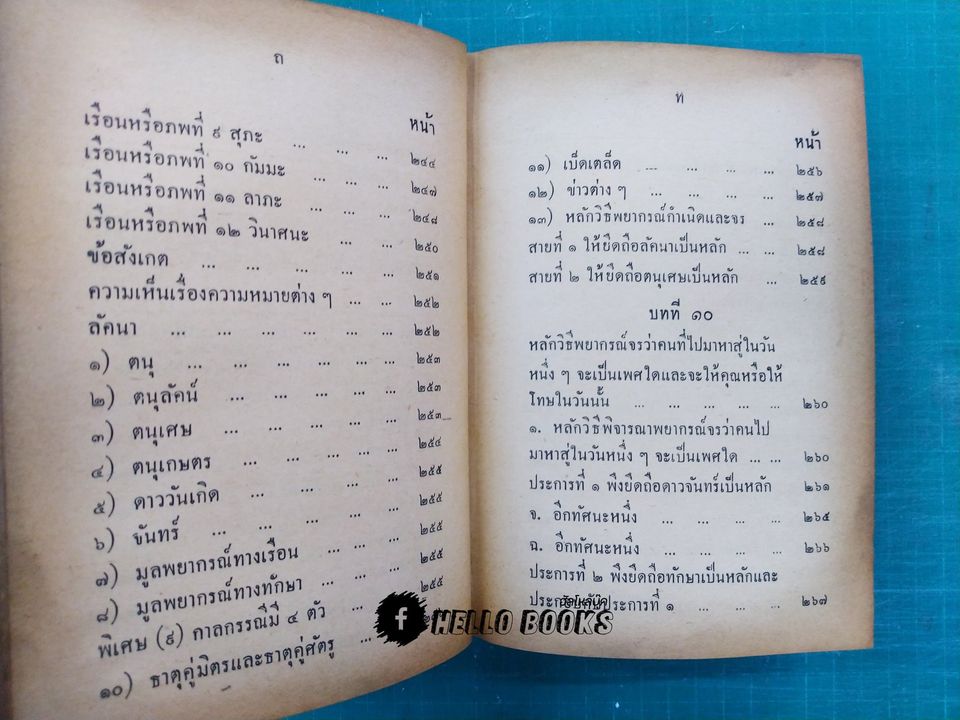 ถ
หน้า
เรือนหรือภพที่ ๙ สุภะ ... ... ... ๒๔๔
เรือนหรือภพที่ ๑๐ กัมมะ ... ... ... ๒๔๗
เรือนหรือภพที่ ๑๑ ลาภะ ... ... ... ๒๔๘
เรือนหรือภพที่ ๑๒ วินาศนะ ... ... ๒๕๐
ข้อสังเกต ... ... ... ... ... ๒๕๑
ความเห็นเรื่องความหมายต่าง ๆ ... ... ๒๕๒
ลัคนา ... ... ... ... ... ... ๒๕๒
๑) ตนุ ... ... ... ... ... ... ๒๕๓
๒) ตนุลัคน์ ... ... ... ... ... ๒๕๓
๓) ตนุเศษ ... ... ... ... ... ๒๕๓
๔) ตนุเกษตร ... ... ... ... ... ๒๕๔
๕) ดาววันเกิด ... ... ... ... ๒๕๕
๖) จันทร์ ... ... ... ... ... ๒๕๕
๗) มูลพยากรณ์ทางเรือน ... ... ... ๒๕๕
๘) มูลพยากรณ์ทางทักษา ... ... ... ๒๕๕
พิเศษ (๙) กาลกรรณีมี ๔ ตัว ...
๑๐) ธาตุคู่มิตรและธาตุคู่ศัตรู ...
ท
หน้า
๑๑) เบ็ดเตล็ด ... ... ... ... ๒๕๖
๑๒) ข่าวต่าง ๆ ... ... ... ... ๒๕๗
๑๓) หลักวิธีพยากรณ์กำเนิดและจร ... ๒๕๘
สายที่ ๑ ให้ยึดถือลัคนาเป็นหลัก ... ... ๒๕๘
สายที่ ๒ ให้ยึดถือตนุเศษเป็นหลัก ... ๒๕๙
บทที่ ๑๐
หลักวิธีพยากรณ์จรว่าคนที่ไปมาหาสู่ในวัน
หนึ่ง ๆ จะเป็นเพศใดและจะให้คุณหรือให้
โทษในวันนั้น ... ... ... ... ... ๒๖๐
๑. หลักวิธีพิจารณาพยากรณ์จรว่าคนไป
มาหาสู่ในวันหนึ่ง ๆ จะเป็นเพศใด ... ... ๒๖๐
ประการที่ ๑ พึงยึดถือดาวจันทร์เป็นหลัก ๒๖๑
จ. อีกทัศนะหนึ่ง ... ... ... ... ๒๖๕
ฉ. อีกทัศนะหนึ่ง ... ... ... ... ๒๖๖
ประการที่ ๒ พึงยึดถือทักษาเป็นหลักและ
ประการที่ ๑ ... ... ... ๒๖๗
HELLO BOOKS